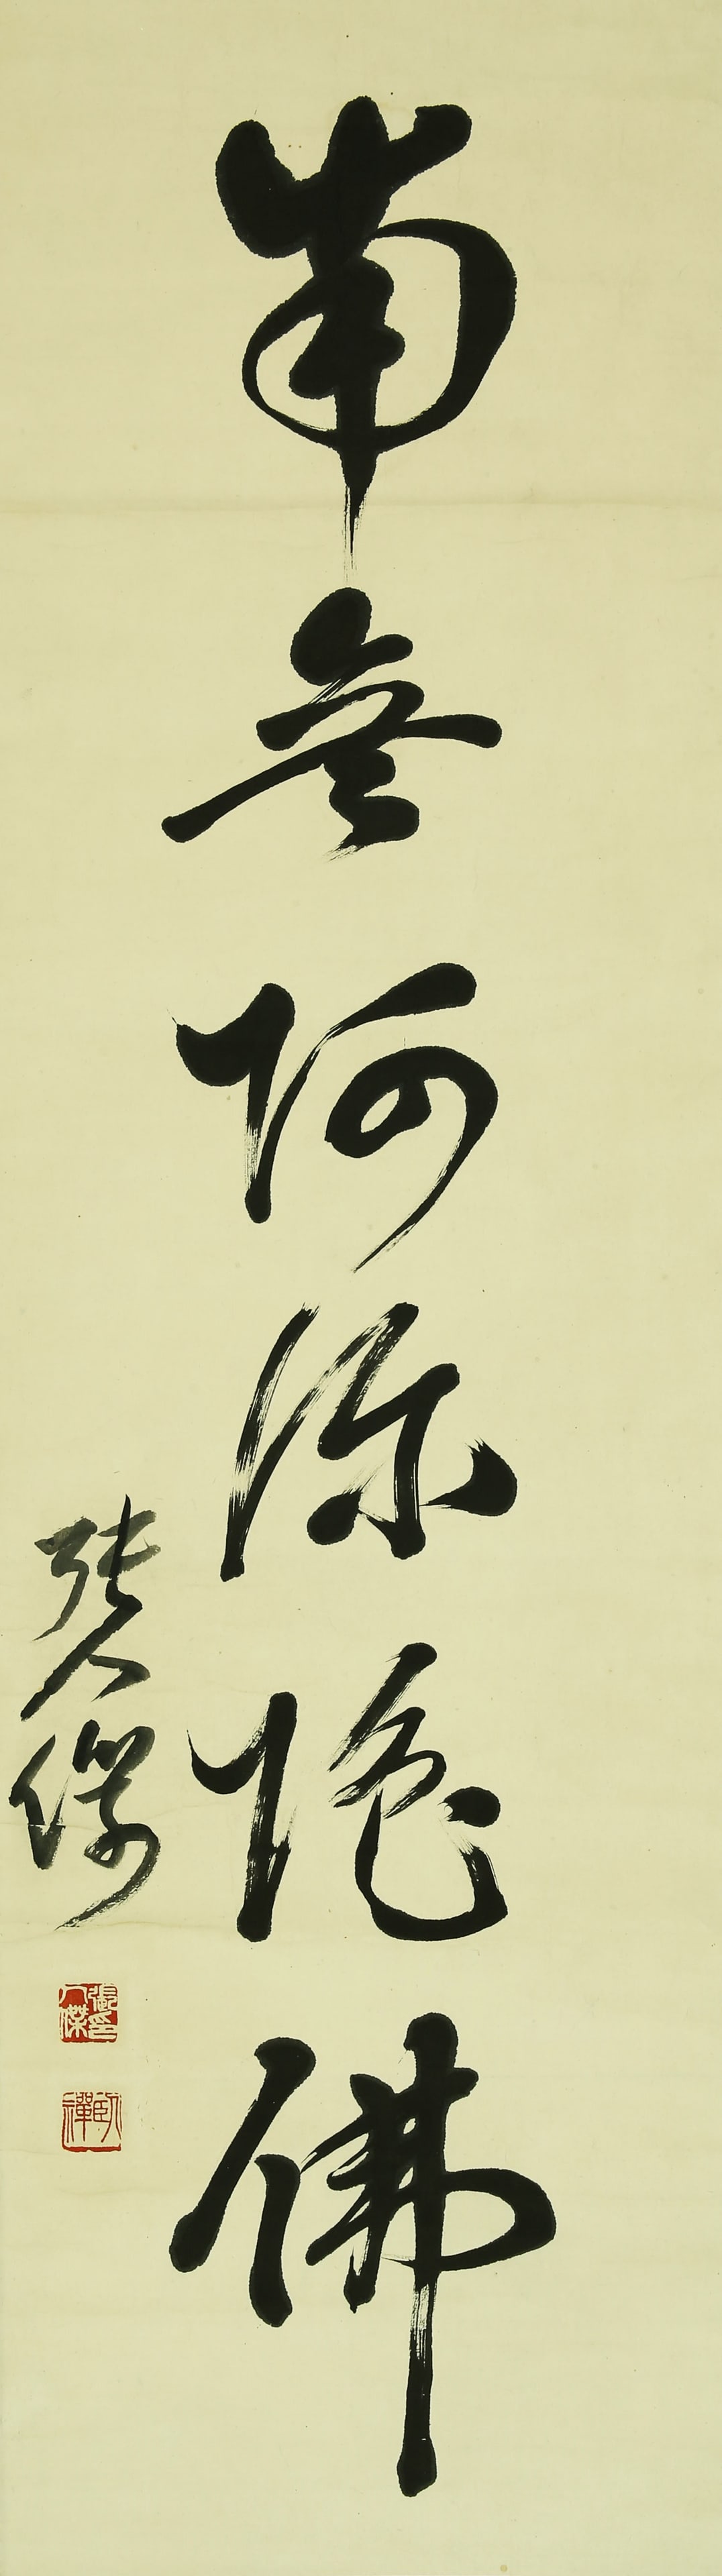 南無阿弥陀佛
張人傑
張人傑印
臥禪